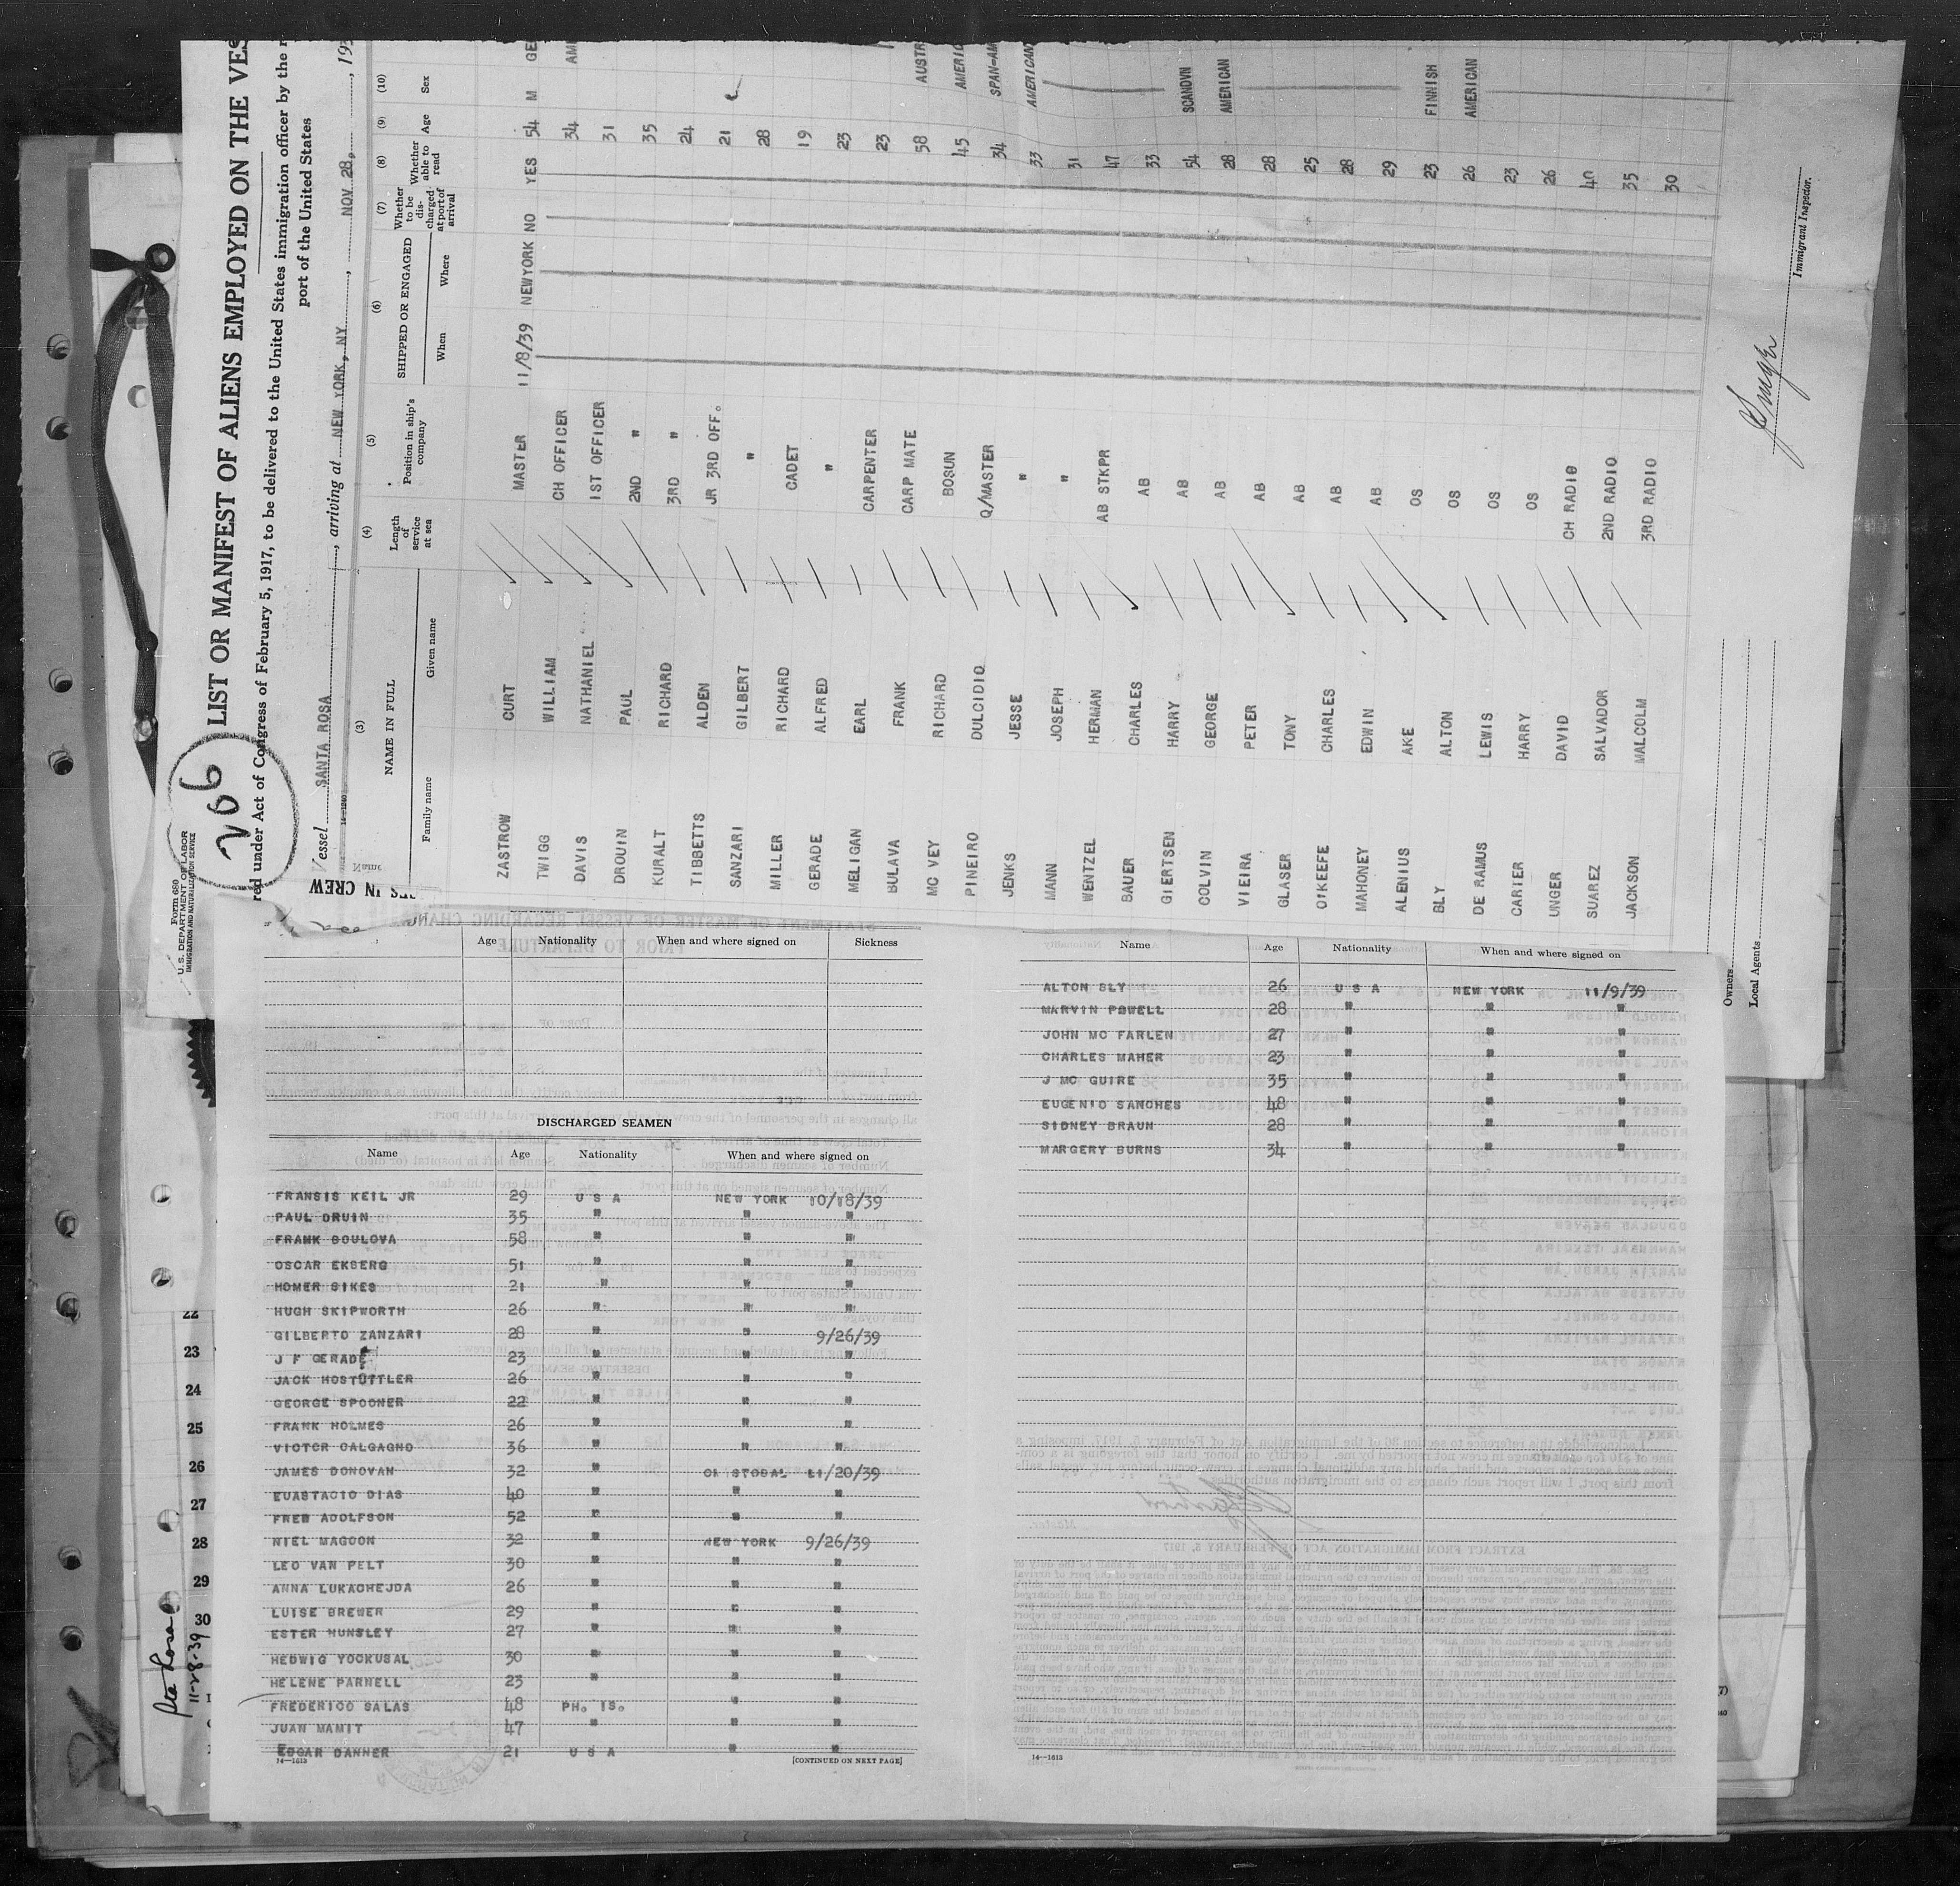 266
Form 680
U. S. DEPARTMENT OF LABOR
IMMIGRATION AND NATURALIZATION SERVICE
LIST OR MANIFEST OF ALIENS EMPLOYED ON THE VES
red under Act of Congress of February 5, 1917, to be delivered to the United States immigration officer by the r
port of the United States
Vessel SANTA ROSA, arriving at NEW YORK, NY, NOV 28, 193
(3) (4) (5) (6) (7) (8) (9) (10)
NAME IN FULL Length of service at sea Position in ship's company SHIPPED OR ENGAGED Whether to be discharged at port of arrival Whether able to read Age Sex
Family name Given name When Where
ZASTROW CURT MASTER 11/8/39 NEWYORK NO YES 54 M GE
TWIGG WILLIAM CH OFFICER 34 AME
DAVIS NATHANIEL 1ST OFFICER 31
DROUIN PAUL 2ND " 35
KURALT RICHARD 3RD " 24
TIBBETTS ALDEN JR 3RD OFF. 21
SANZARI GILBERT " 28
MILLER RICHARD CADET 19
GERADE ALFRED " 23
MELIGAN EARL CARPENTER 23
BULAVA FRANK CARP MATE 58 AUSTR
MC VEY RICHARD BOSUN 45 AMERIC
PINEIRO DULCIDIO Q/MASTER 34 SPAN-AM
JENKS JESSE " 33 AMERICAN
MANN JOSEPH " 31
WENTZEL HERMAN AB STKPR 47
BAUER CHARLES AB 33
GIERTSEN HARRY AB 54 SCANDVN
COLVIN GEORGE AB 28 AMERICAN
VIEIRA PETER AB 28
GLASER TONY AB 25
O'KEEFE CHARLES AB 28
MAHONEY EDWIN AB 29
ALENIUS AKE OS 23 FINNISH
BLY ALTON OS 26 AMERICAN
DE RAMUS LEWIS OS 23
CARTER HARRY OS 26
UNGER DAVID CH RADIO 40
SUAREZ SALVADOR 2ND RADIO 35
JACKSON MALCOLM 3RD RADIO 30
Immigrant Inspector.
Owners
Local Agents
Age Nationality When and where signed on Sickness
DISCHARGED SEAMEN
Name Age Nationality When and where signed on
FRANSIS KEIL JR 29 U S A NEW YORK 10/18/39
PAUL DRUIN 35 " " "
FRANK BOULOVA 58 " " "
OSCAR EKBERG 51 " " "
HOMER SIKES 21 " " "
HUGH SKIPWORTH 26 " " "
GILBERTO ZANZARI 28 " " 9/26/39
J F GERADE 23 " " "
JACK HOSTUTTLER 26 " " "
GEORGE SPOONER 22 " " "
FRANK HOLMES 26 " " "
VICTOR CALGAGNO 36 " " "
JAMES DONOVAN 32 " 11/20/39
EUASTACIO DIAS 40 " " "
FRED ADOLFSON 52 " " "
NIEL MAGOON 32 " NEW YORK 9/26/39
LEO VAN PELT 30 " " "
ANNA LUKACHEJDA 26 " " "
LUISE BREWER 29 " " "
ESTER HUNSLEY 27 " " "
HEDWIG YOCKUSAL 30 " " "
HELENE PARNELL 23 " "
FREDERICO SALAS 48 PH. IS. " "
JUAN MAMIT 47 " " "
EDGAR DANNER 21 U S A " "
14—1613 [CONTINUED ON NEXT PAGE]
Name Age Nationality When and where signed on
ALTON BLY 26 U S A NEW YORK 11/9/39
MARVIN POWELL 28 " " "
JOHN MC FARLEN 27 " " "
CHARLES MAHER 23 " " "
J MC GUIRE 35 " " "
EUGENIO SANCHES 48 " " "
SIDNEY BRAUN 28 " " "
MARGERY BURNS 34 " " "
14—1613
22
23
24
25
26
27
28
29
30
Sta Rosa
11-28-39